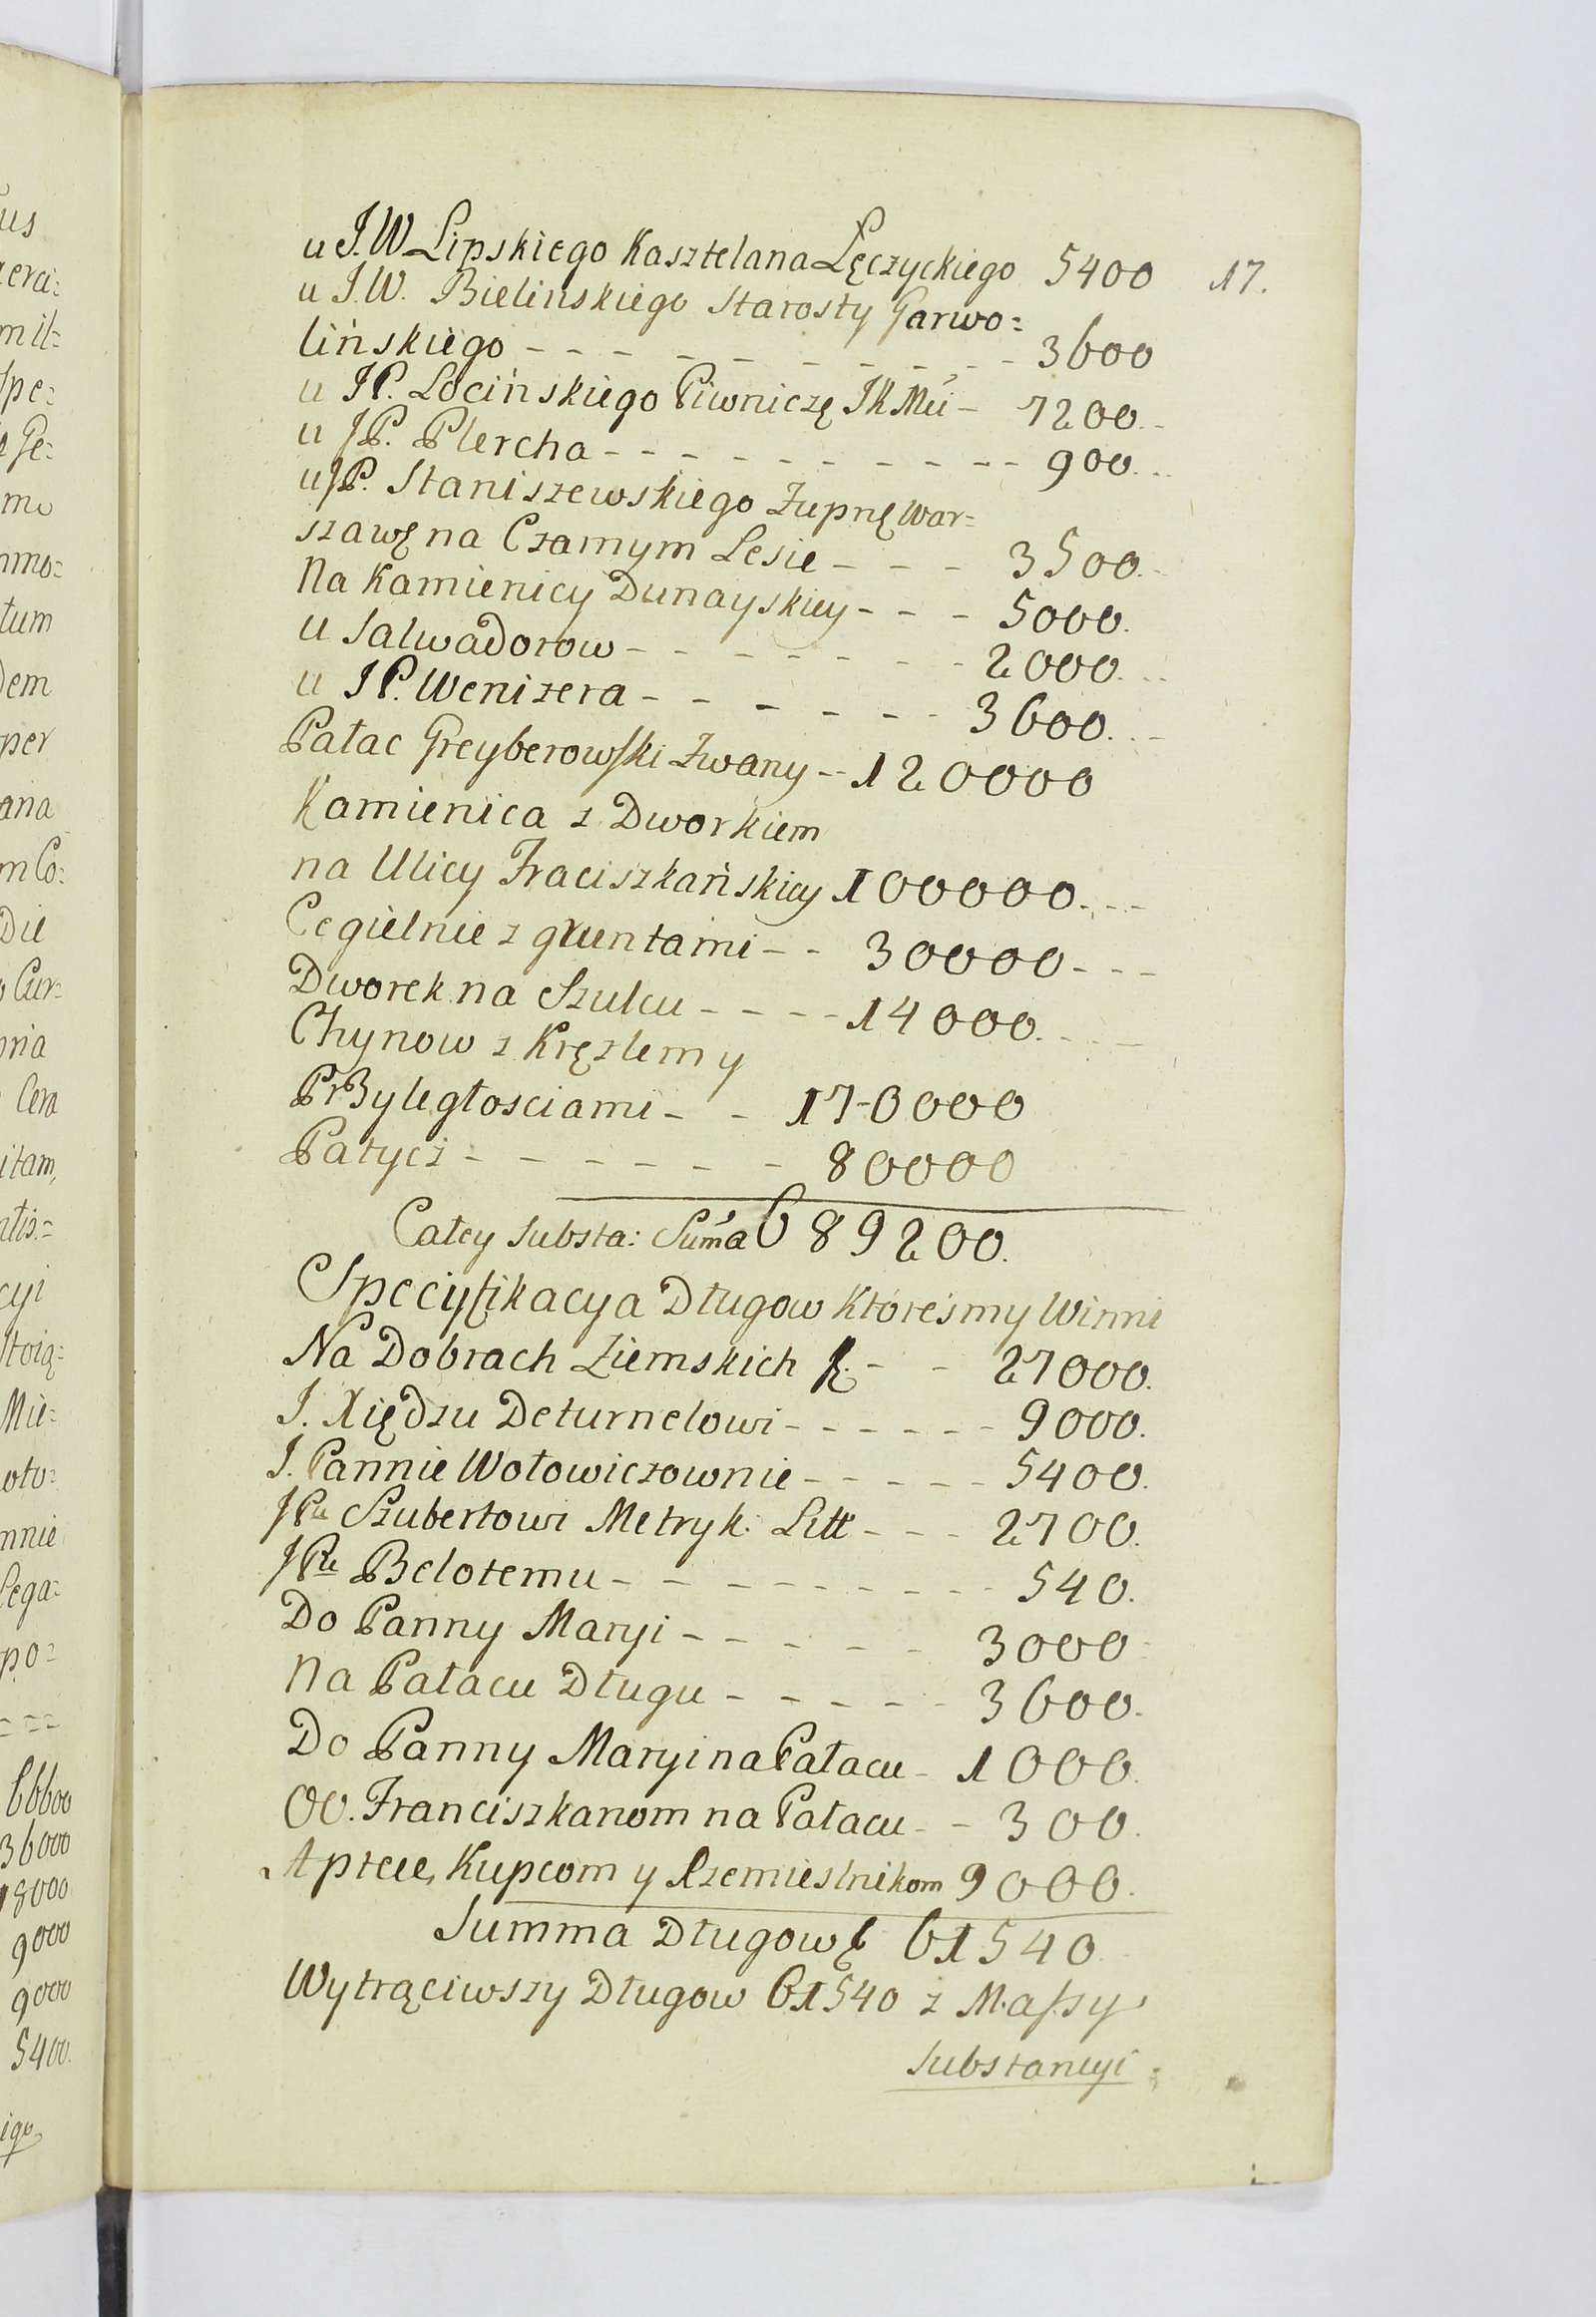 u J.W. Lipskiego Kasztelana Łęczyckiego 5400 17.
u J.W. Bielinskiego Starosty Garwo=
lińskiego - - - - - - - - - 3600
u JP. Locińskiego Piwniczę JKMci - 7200.
u JP. Plercha - - - - - - - - - 900.
u JP. Staniszewskiego Zupnę War=
szawę na Czarnym Lesie - - - 3500.
Na Kamienicy Dunayskiey - - - 5000.
u Salwadorow - - - - - - - 2000.
u JP. Wenizera - - - - - - 3600.
Pałac Greyberowski Zwany - - 120000
Kamienica z Dworkiem
na Ulicy Fraciszkańskiey 100000.
Cegielnie z gruntami - - 30000 - - -
Dworek na Szulcu - - - - 14000.
Chynow z Kręzlem y
Przyległosciami - - 170000
Patycz - - - - - - 80000
Całey Substa: Suma 689200.
Specyfikacya Długow Ktoreśmy Winni
Na Dobrach Ziemskich - - 27000.
J. Xiędzu Deturnelowi - - - - - - 9000.
J. Pannie Wołowiczownie - - - - - 5400.
JPu Szubertowi Metryk. Litt - - - 2700.
JPu Belotemu - - - - - - - - - 540.
Do Panny Maryi - - - - - 3000
Na Pałacu Długu - - - - - 3600.
Do Panny Maryi na Pałacu - 1000.
OO. Franciszkanom na Pałacu - - 300.
Aptece, Kupcom y Rzemieslnikom 9000.
Summa Długow 61540
Wytrąciwszy Długow 61540 z Massy
Substancyi